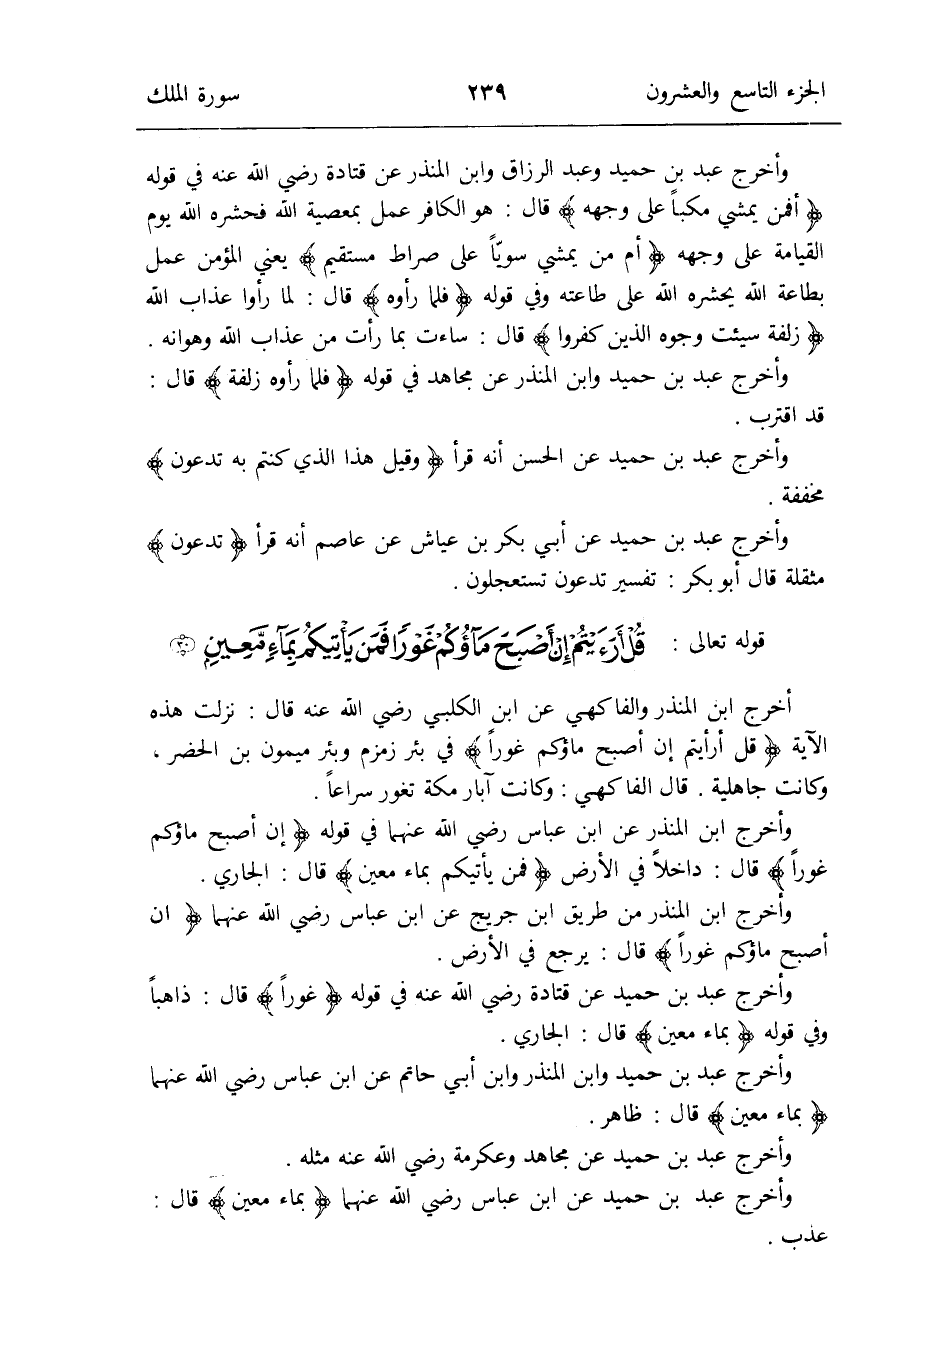 الجزء التاسع والعشرون ٢٣٩ سورة الملك
وأخرج عبد بن حميد وعبد الرزاق وابن المنذر عن قتادة رضي الله عنه في قوله
﴿ أفمن يمشي مكباً على وجهه ﴾ قال : هو الكافر عمل بمعصية الله فحشره الله يوم
القيامة على وجهه ﴿ أم من يمشي سويّاً على صراط مستقيم ﴾ يعني المؤمن عمل
بطاعة الله يحشره الله على طاعته وفي قوله ﴿ فلما رأوه ﴾ قال : لما رأوا عذاب الله
﴿ زلفة سيئت وجوه الذين كفروا ﴾ قال : ساءت بما رأت من عذاب الله وهوانه .
وأخرج عبد بن حميد وابن المنذر عن مجاهد في قوله ﴿ فلما رأوه زلفة ﴾ قال :
قد اقترب .
وأخرج عبد بن حميد عن الحسن أنه قرأ ﴿ وقيل هذا الذي كنتم به تدعون ﴾
مخففة .
وأخرج عبد بن حميد عن أبي بكر بن عياش عن عاصم أنه قرأ ﴿ تدعون ﴾
مثقلة قال أبو بكر : تفسير تدعون تستعجلون .
قوله تعالى : قُلْ أَرَءَيْتُمْ إِنْ أَصْبَحَ مَآؤُكُمْ غَوْرًا فَمَن يَأْتِيكُم بِمَآءٍ مَّعِينٍ ٣٠
أخرج ابن المنذر والفاكهي عن ابن الكلبي رضي الله عنه قال : نزلت هذه
الآية ﴿ قل أرأيتم إن أصبح ماؤكم غوراً ﴾ في بئر زمزم وبئر ميمون بن الحضر ،
وكانت جاهلية . قال الفاكهي : وكانت آبار مكة تغور سراعاً .
وأخرج ابن المنذر عن ابن عباس رضي الله عنهما في قوله ﴿ إن أصبح ماؤكم
غوراً ﴾ قال : داخلاً في الأرض ﴿ فمن يأتيكم بماء معين ﴾ قال : الجاري .
وأخرج ابن المنذر من طريق ابن جريج عن ابن عباس رضي الله عنهما ﴿ ان
أصبح ماؤكم غوراً ﴾ قال : يرجع في الأرض .
وأخرج عبد بن حميد عن قتادة رضي الله عنه في قوله ﴿ غوراً ﴾ قال : ذاهباً
وفي قوله ﴿ بماء معين ﴾ قال : الجاري .
وأخرج عبد بن حميد وابن المنذر وابن أبي حاتم عن ابن عباس رضي الله عنهما
﴿ بماء معين ﴾ قال : ظاهر .
وأخرج عبد بن حميد عن مجاهد وعكرمة رضي الله عنه مثله .
وأخرج عبد بن حميد عن ابن عباس رضي الله عنهما ﴿ بماء معين ﴾ قال :
عذب .